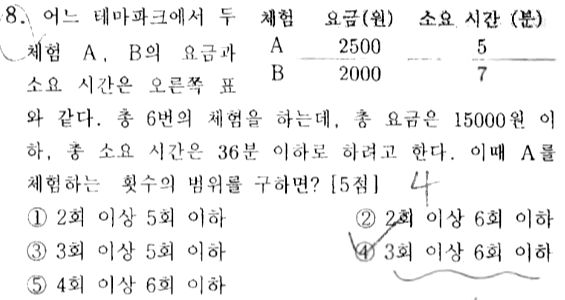 8. 어느 테마파크에서 두 체험 A, B의 요금과 소요 시간은 오른쪽 표
체험 요금(원) 소요 시간 (분)
A 2500 5
B 2000 7
와 같다. 총 6번의 체험을 하는데, 총 요금은 15000원 이
하, 총 소요 시간은 36분 이하로 하려고 한다. 이때 A를
체험하는 횟수의 범위를 구하면? [5점] 4
① 2회 이상 5회 이하 ② 2회 이상 6회 이하
③ 3회 이상 5회 이하 ④ 3회 이상 6회 이하
⑤ 4회 이상 6회 이하